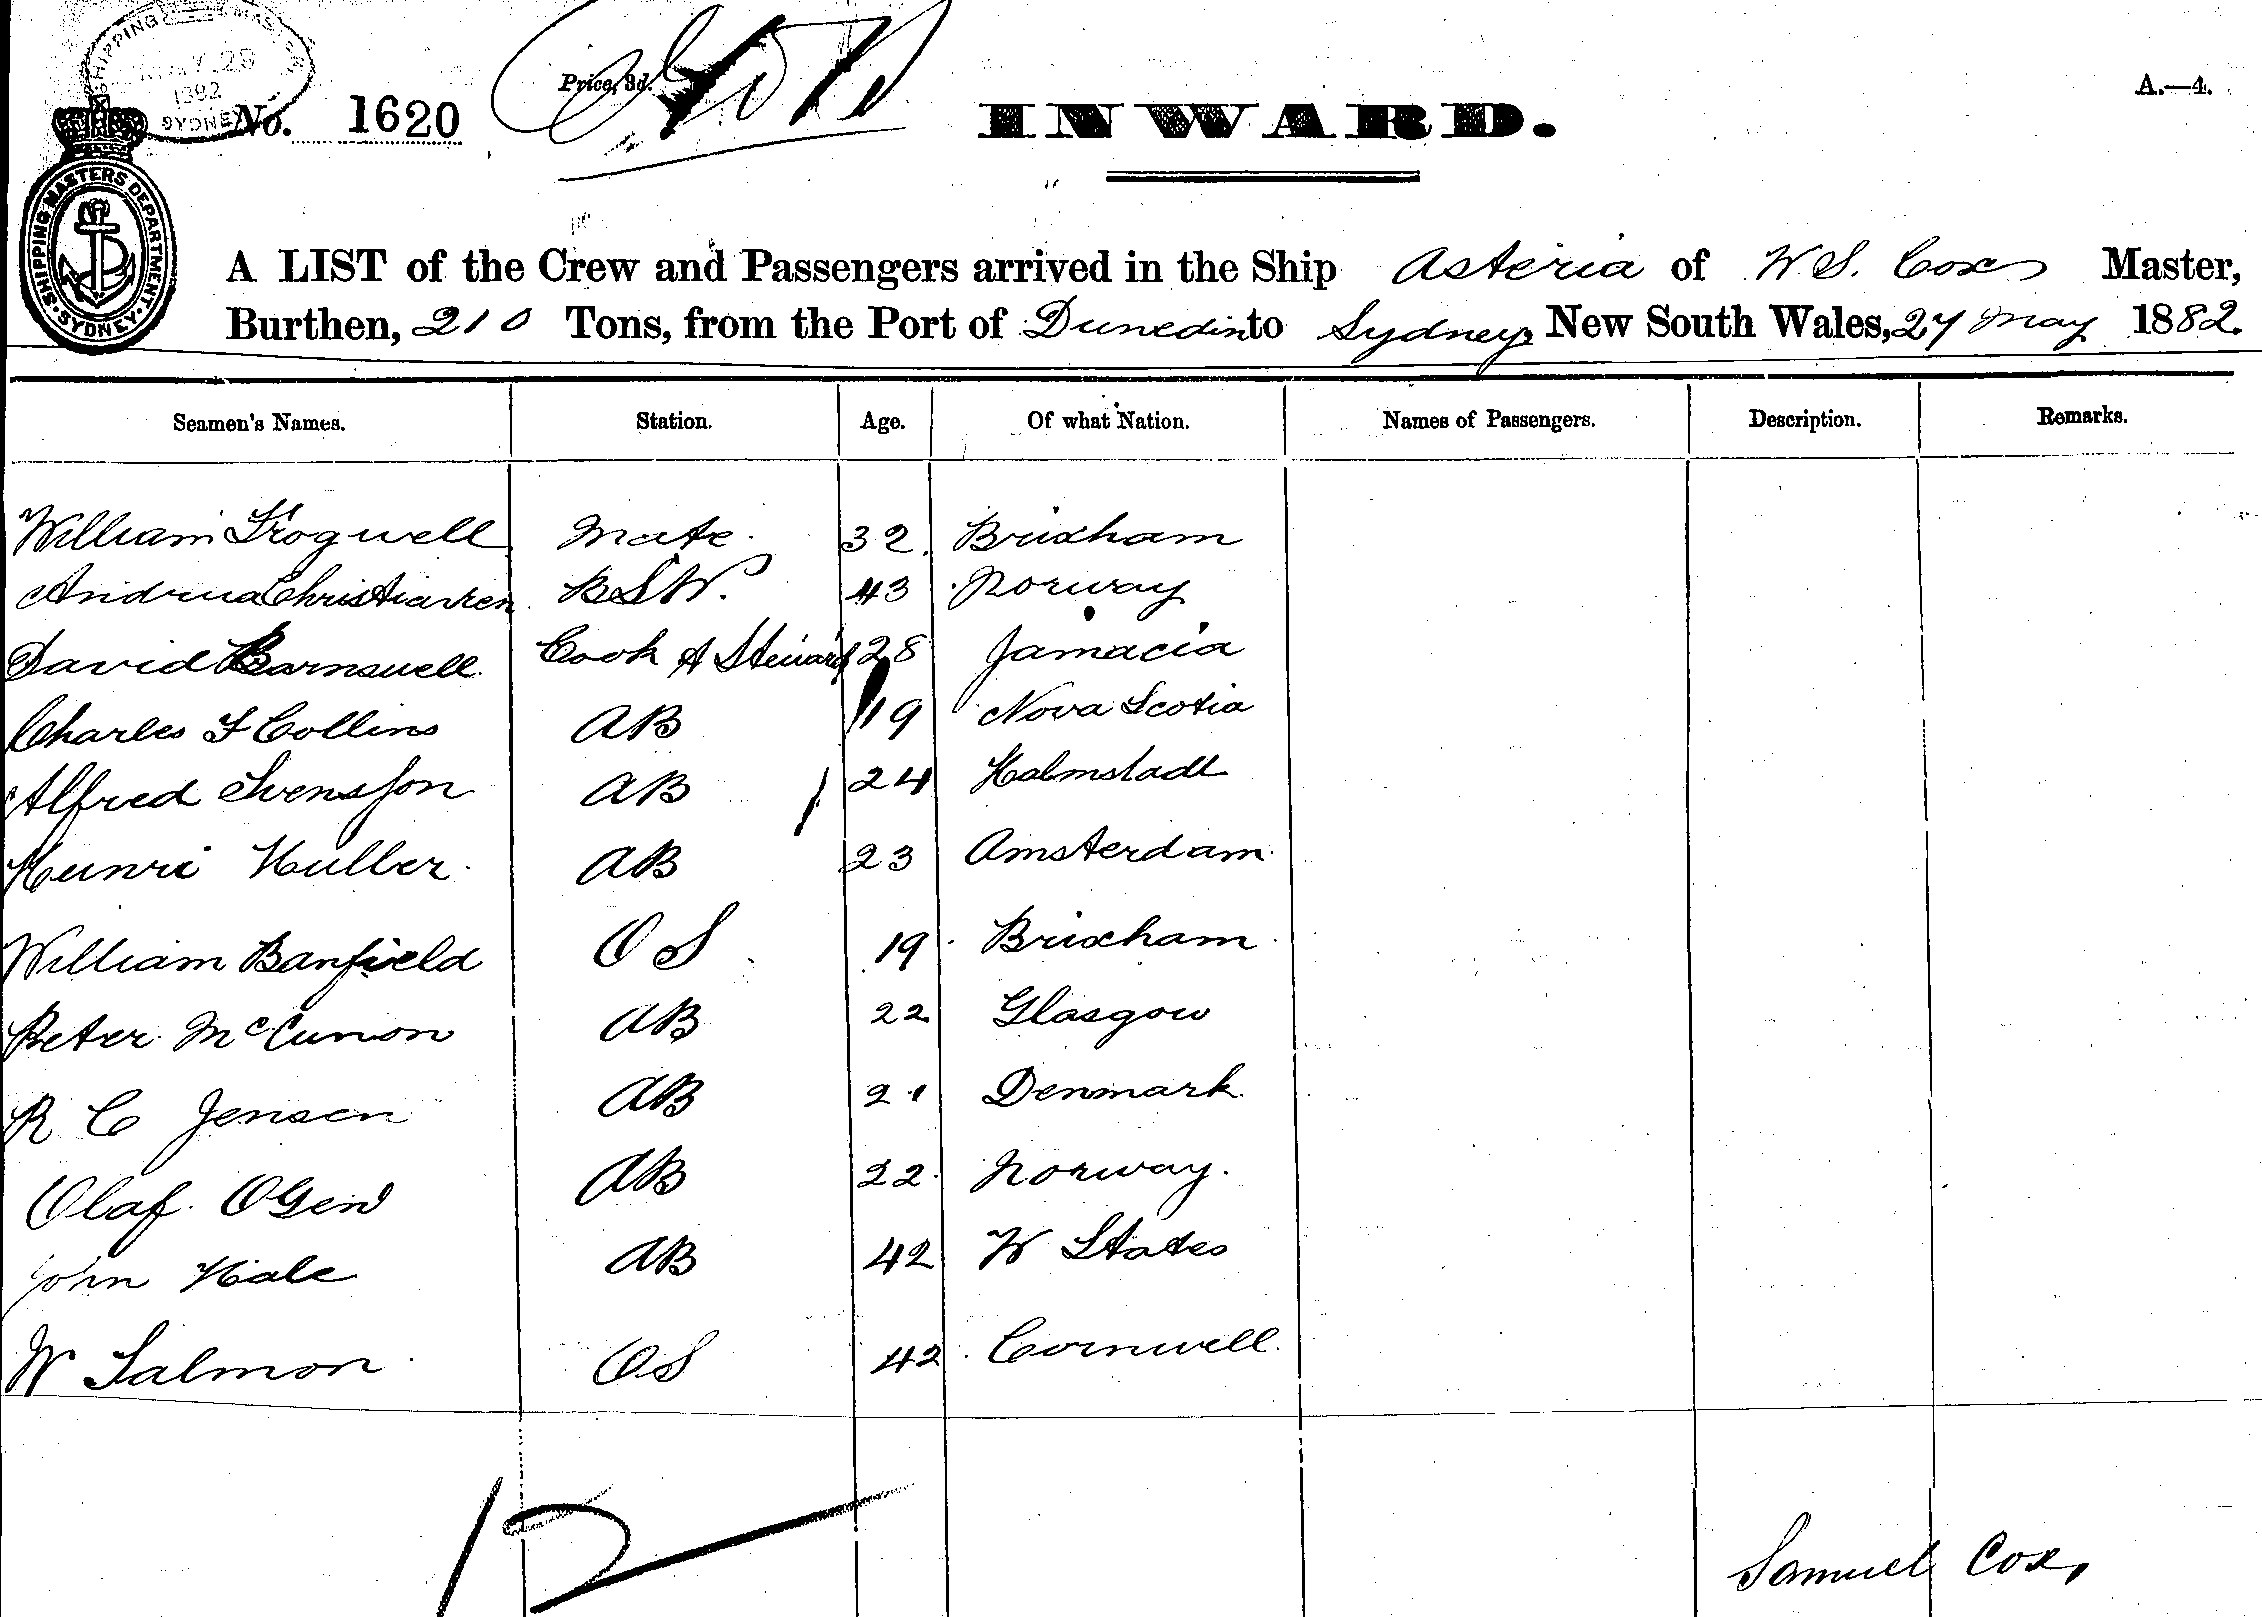 SHIPPING MASTERS
MAY 29
1882
SYDNEY
Price, 3d.
A.—4.
No. 1620
INWARD.
SHIPPING MASTERS DEPARTMENT. SYDNEY.
A LIST of the Crew and Passengers arrived in the Ship Asteria of W S. Cox Master,
Burthen, 210 Tons, from the Port of Dunedin to Sydney, New South Wales, 27 May 1882.
Seamen's Names. Station. Age. Of what Nation. Names of Passengers. Description. Remarks.
William Frogwell Mate 32 Brixham
Andrua Christiansen B S W. 43 Norway
David Barnswell Cook & Steward 28 Jamacia
Charles F Collins AB 19 Nova Scotia
Alfred Svensson AB 24 Halmstadt
Hunri Huller AB 23 Amsterdam
William Banfield O S 19 Brixham
Peter McCunon AB 22 Glasgow
R C Jensen AB 21 Denmark
Olaf Olsen AB 22 Norway.
John Hale AB 42 W States
W Salmon OS 42 Cornwell
12
Samuel Cox,